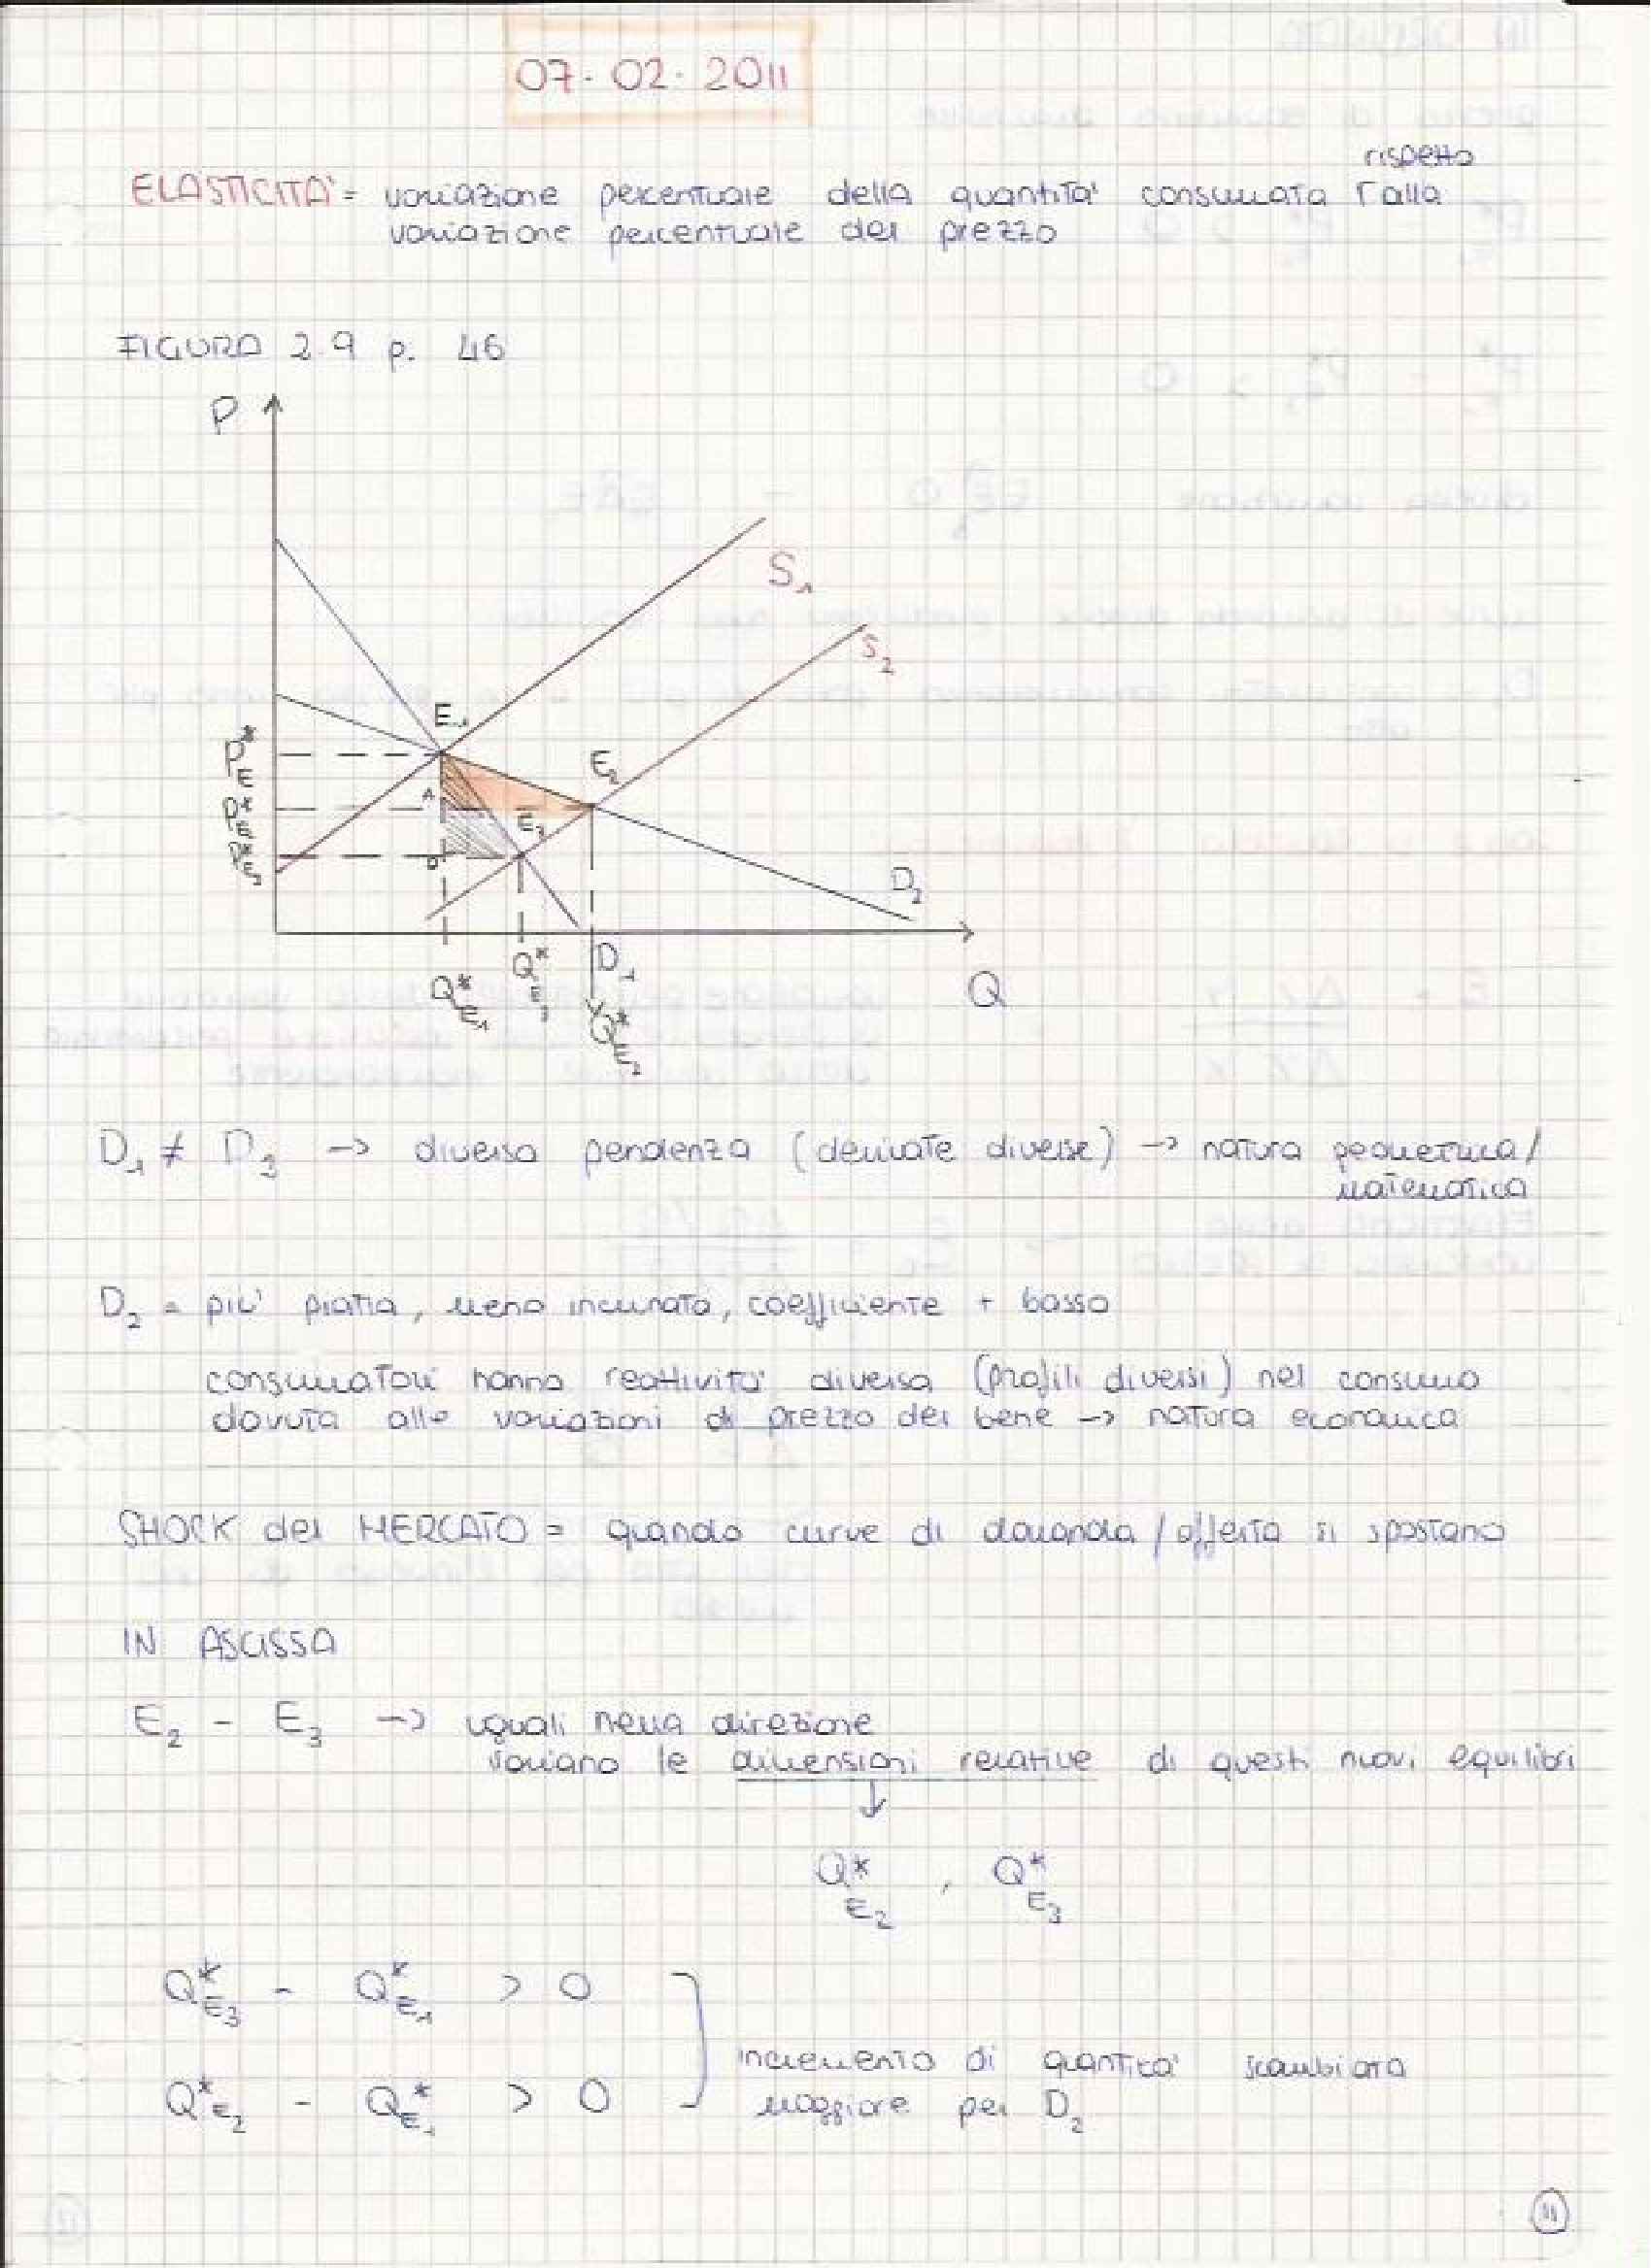 07.02.2011
rispetto
ELASTICITA' = variazione percentuale della quantita' consumata Γ alla
variazione percentuale del prezzo
FIGURA 2.9 p. 46
P
S1
S2
E1
P*E1
E2
A
P*E2
E3
B
P*E3
D2
D1
Q*E3
Q*E1
Q
Q*E2
D1 ≠ D3 -> diversa pendenza (derivate diverse) -> natura geometrica/
matematica
D2 = piu' piatta, meno inclinata, coefficiente + basso
consumatori hanno reattivita' diversa (profili diversi) nel consumo
dovuta alle variazioni di prezzo del bene -> natura economica
SHOCK del MERCATO = quando curve di domanda/offerta si spostano
IN ASCISSA
E2 - E3 -> uguali nella direzione
variano le dimensioni relative di questi nuovi equilibri
↓
Q*E2 , Q*E3
Q*E3 - Q*E1 > 0
incremento di quantita' scambiata
Q*E2 - Q*E1 > 0
maggiore per D2
11